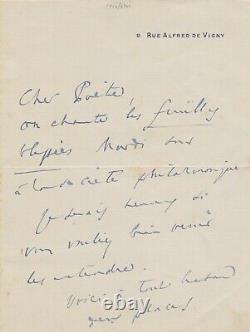 9 RUE ALFRED DE VIGNY
Cher Poète,
on chante les feuilles
blessées Mardi soir
à la Société philharmonique
Je serais heureux si
vous vouliez bien venir
les entendre.
Voici à tout hasard
deux places!